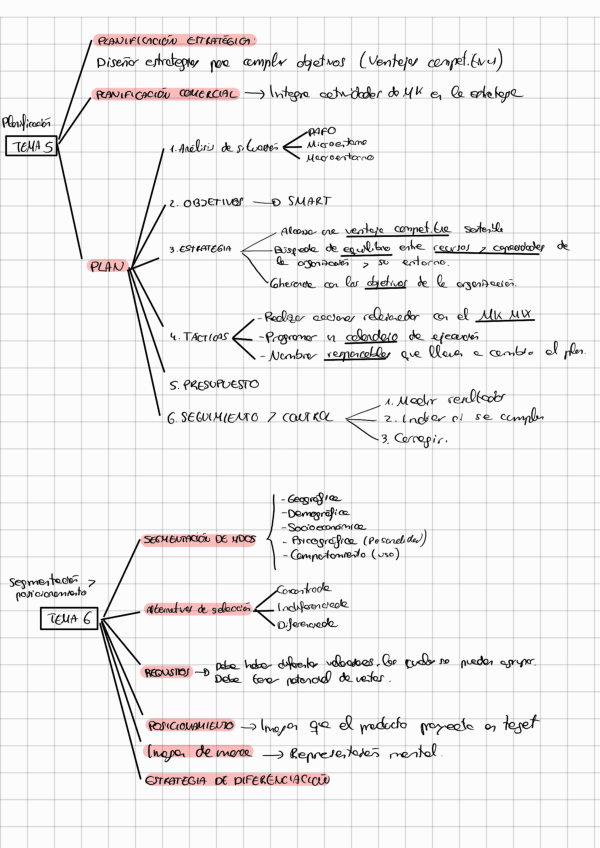 PLANIFICACIÓN ESTRATÉGICA:
Diseñar estrategias para cumplir objetivos (Ventajas compet.
PLANIFICACIÓN COMERCIAL → Integra actividades de MK en la estrategia
Planificación
TEMA 5
PLAN
1. Análisis de situación
DAFO
Microentorno
Macroentorno
2. OBJETIVOS → SMART
3. ESTRATEGIA
Alcanza una ventaja competitiva sostenible
Búsqueda de equilibrio entre recursos y capacidades de
la organización y su entorno.
Coherencia con los objetivos de la organización.
4. TÁCTICAS
- Realizar acciones relacionadas con el MK MIX
- Programar un calendario de ejecución
- Nombrar responsables que lleven a cambio el plan.
5. PRESUPUESTO
6. SEGUIMIENTO Y CONTROL
1. Medir resultados
2. Indicar si se cumplen
3. Corregir.
Segmentación y
posicionamiento
TEMA 6
SEGMENTACIÓN DE MDOS
- Geográfica
- Demográfica
- Socioeconómica
- Psicográfica (Personalidad)
- Comportamiento (uso)
Alternativas de selección
Concentrada
Indiferenciada
Diferenciada
REQUISITOS → Debe haber diferentes valoraciones. Los cuales se puedan agrupar.
Debe tener potencial de ventas.
POSICIONAMIENTO → Imagen que el producto proyecta en target
Imagen de marca → Representación mental.
ESTRATEGIA DE DIFERENCIACIÓN